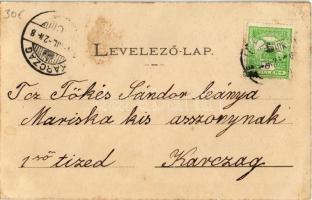 30k
KARCZAG
LEVELEZŐ-LAP.
Tcz Tőkés Sándor leánya
Mariska kis asszonynak
1ső tized Karczag